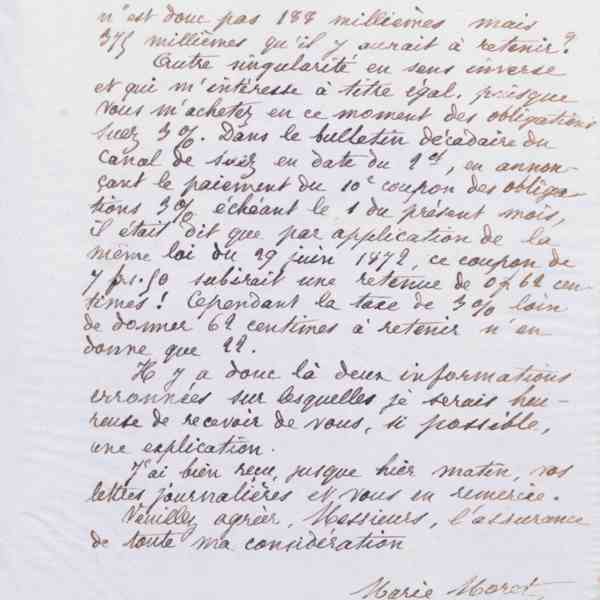 n'est donc pas 188 millièmes mais
375 millièmes qu'il y aurait à retenir?
Autre singularité en sens inverse
et qui m'intéresse à titre égal, puisque
vous m'achetez en ce moment des obligations
Suez 3%. Dans le bulletin décadaire du
Canal de Suez en date du 2 et, en annon-
çant le paiement du 10e coupon des obliga-
tions 3% échéant le 1 du présent mois,
il était dit que par application de la
même loi du 29 juin 1872, ce coupon de
7 frs. 50 subirait une retenue de 0f 62 cen-
times! Cependant la taxe de 3% loin
de donner 62 centimes à retenir n'en
donne que 22.
Il y a donc là deux informations
erronnées sur lesquelles je serais heu-
reuse de recevoir de vous, si possible,
une explication.
J'ai bien reçu, jusque hier matin, vos
lettres journalières et vous en remercie.
Veuillez agréer, Messieurs, l'assurance
de toute ma considération
Marie Moret,